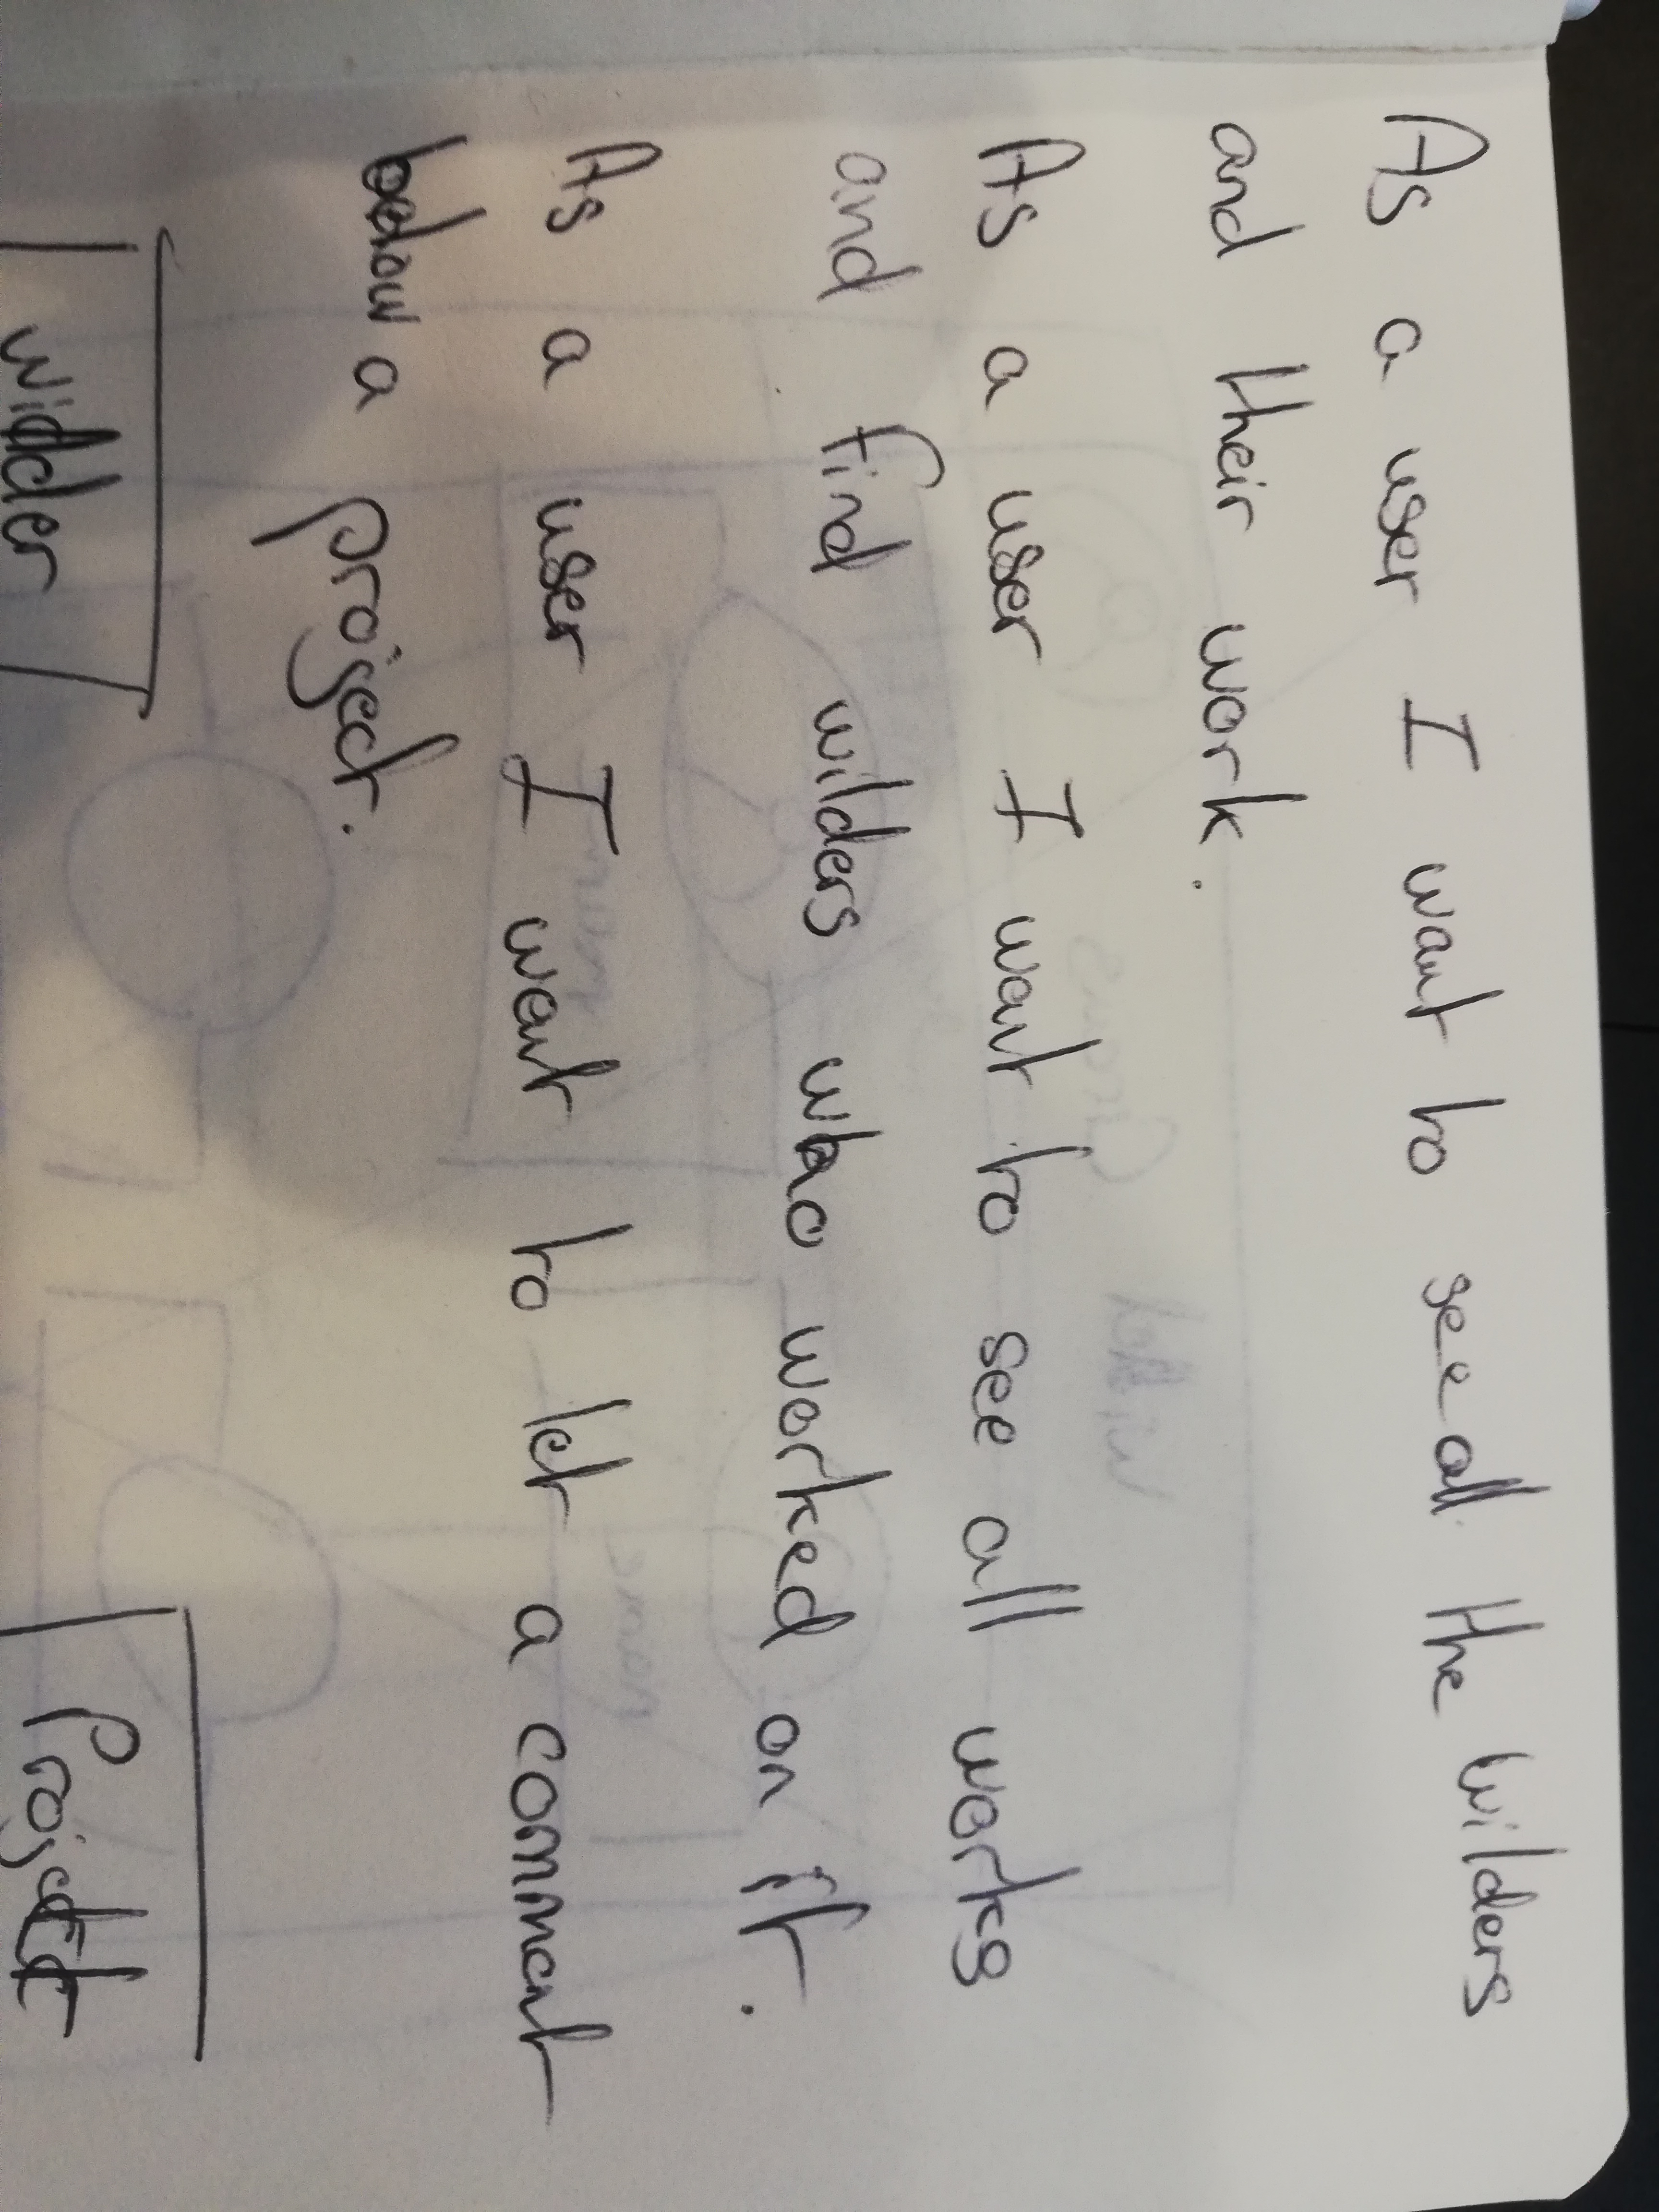 As a user I want to see all the wilders
and their work.
As a user I want to see all works
and find wilders who worked on it.
As a user I want to let a comment
below a project.
widder Project